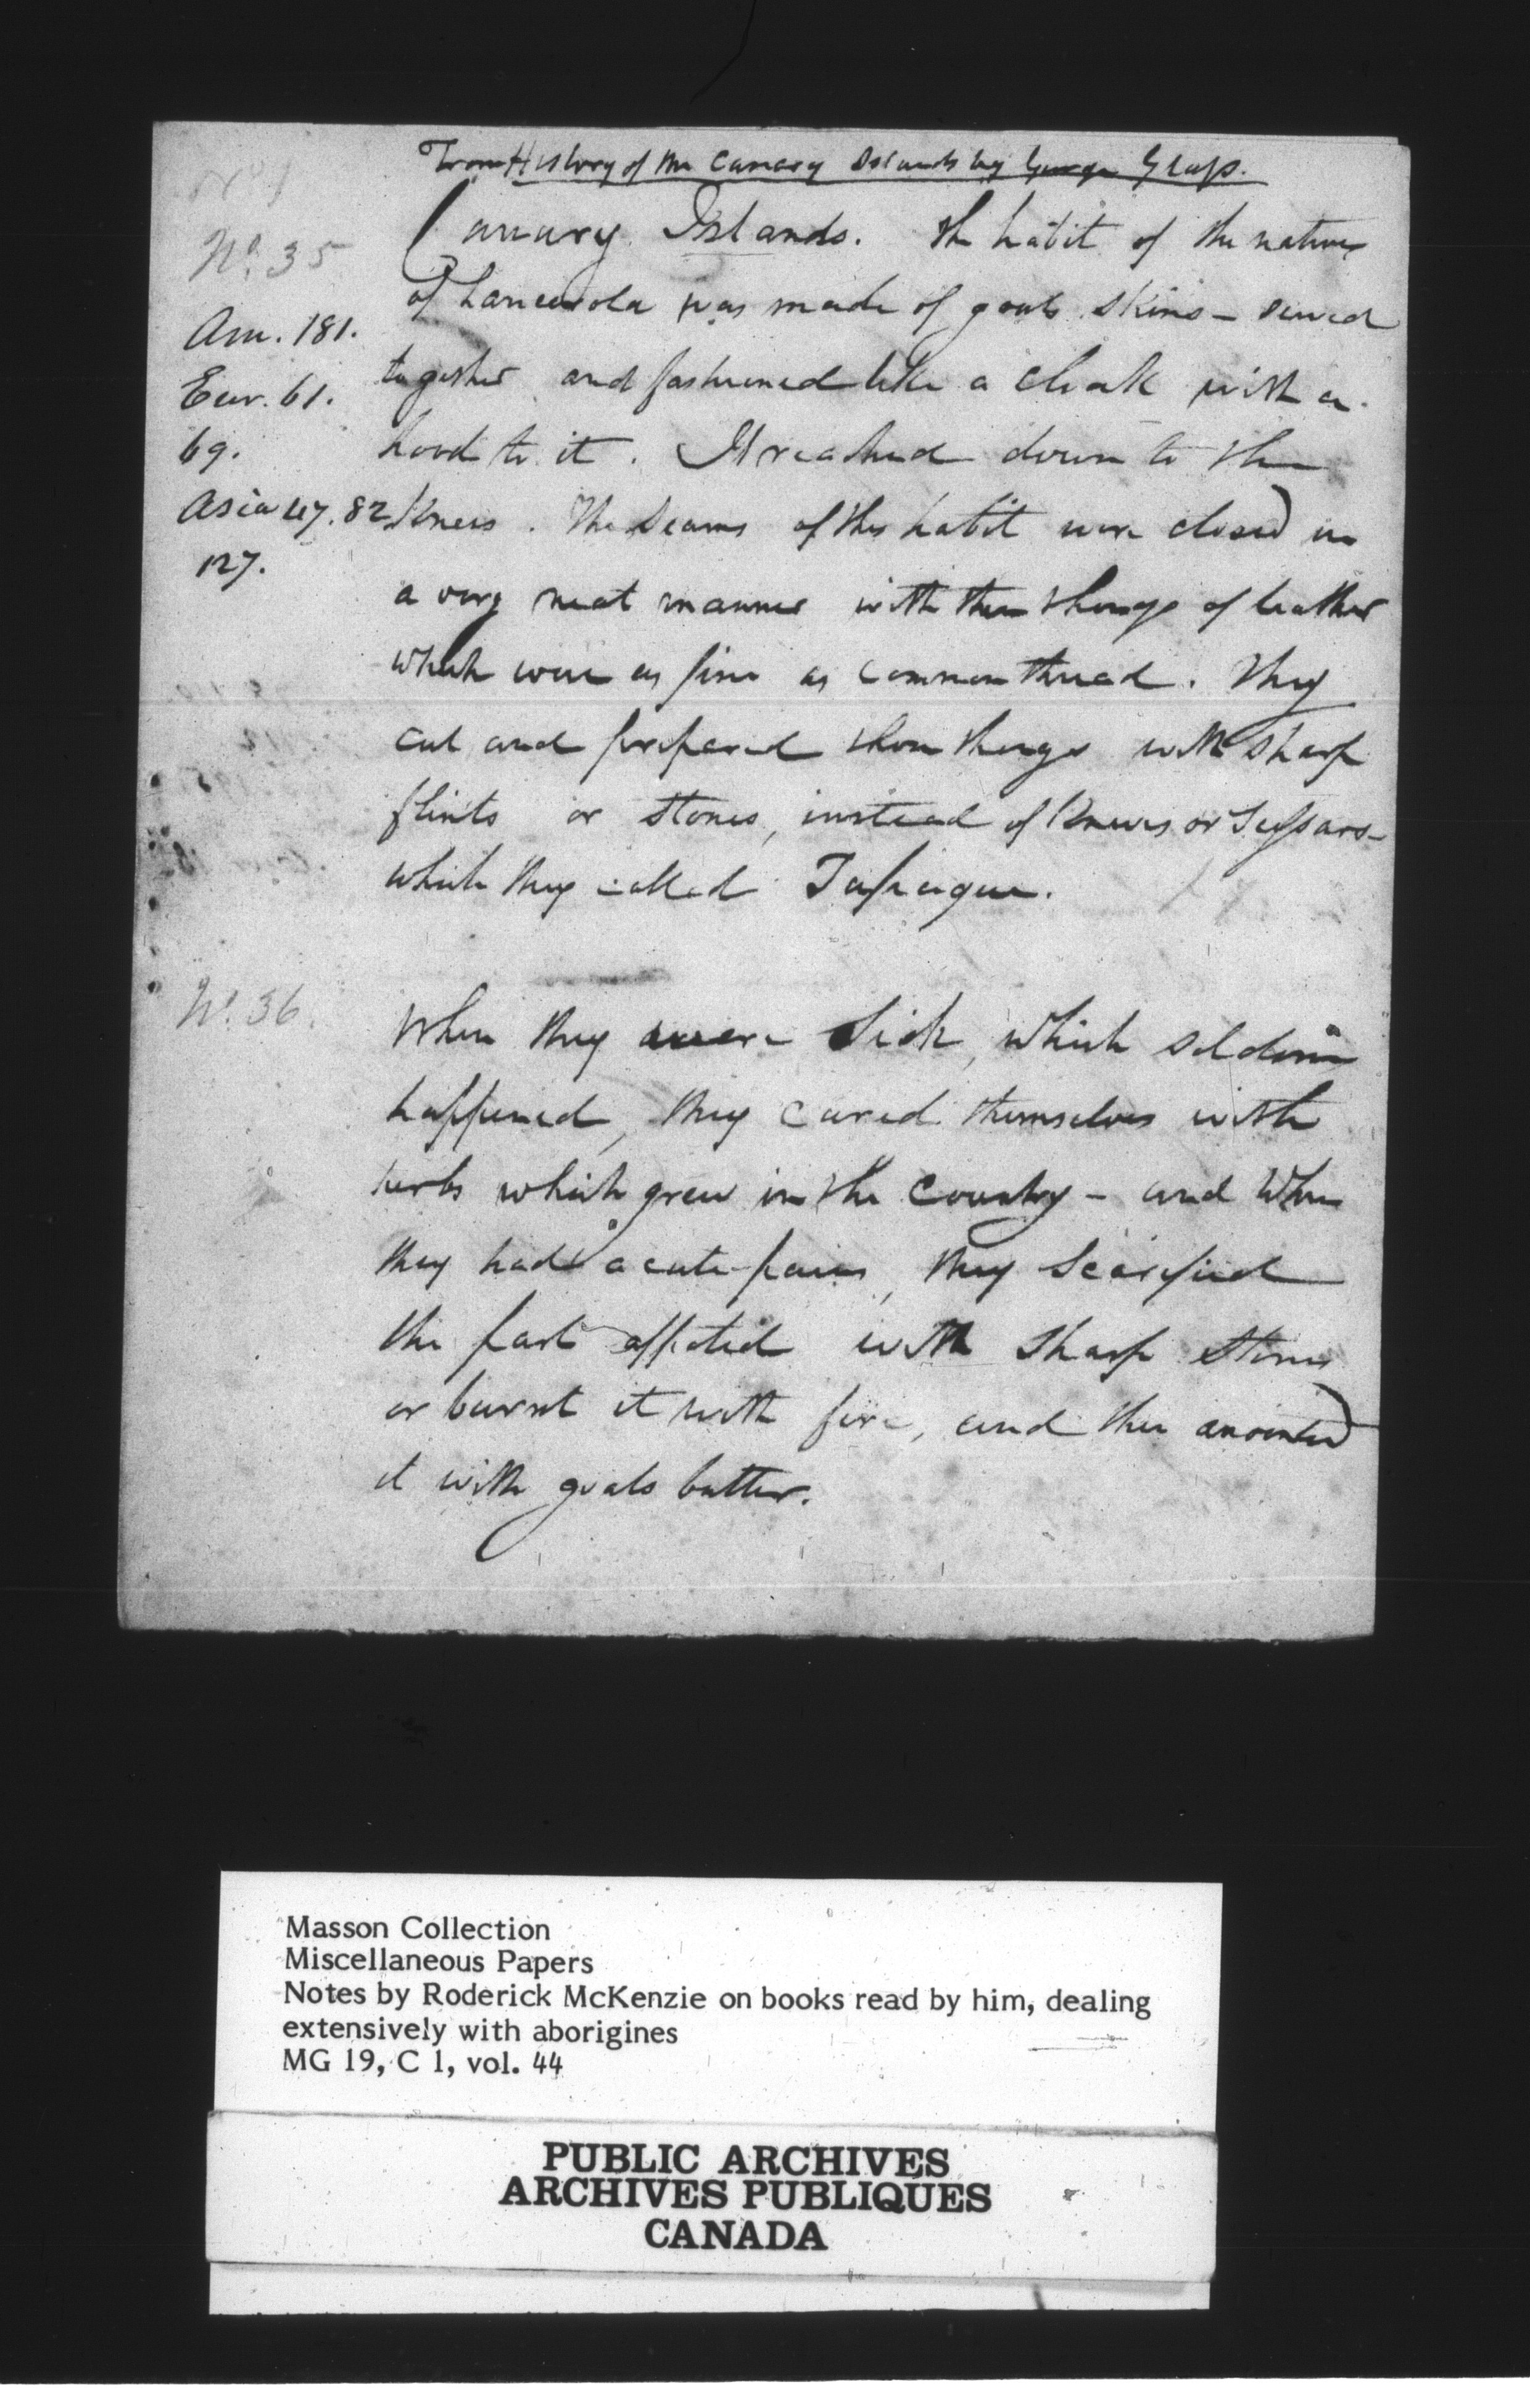 From History of the Canary Islands by George Glass.
No. 35
Canary Islands. The habit of the natives
of Lancerota was made of goats skins – sewed
Am. 181.
together and fashioned like a cloak with a
Eur. 61.
69.
hood to it. It reached down to the
Asia 47. 82
Knees. The Seams of this habit were closed in
127.
a very neat manner with thin thongs of leather
which were as fine as common thread. They
cut and prepared these thongs with sharp
flints or stones, instead of Knives or Scissars –
which they called Tafiague.
No. 36.
When they were Sick, which seldom
happened, they cured themselves with
herbs which grew in the Country – and when
they had acute pains, they Scarified
the part affected with sharp stones
or burnt it with fire, and then anointed
it with goats butter.
Masson Collection
Miscellaneous Papers
Notes by Roderick McKenzie on books read by him, dealing
extensively with aborigines
MG 19, C 1, vol. 44
PUBLIC ARCHIVES
ARCHIVES PUBLIQUES
CANADA